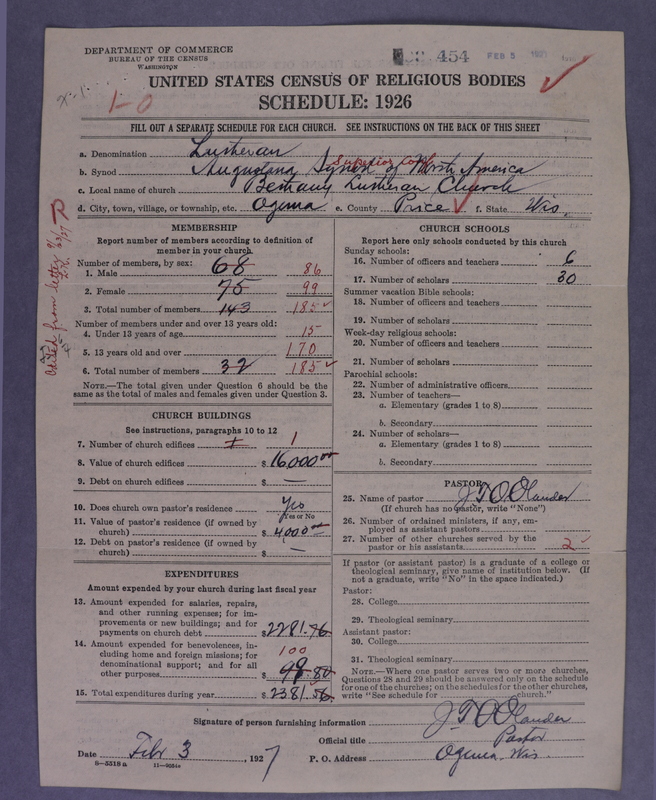 DEPARTMENT OF COMMERCE
BUREAU OF THE CENSUS
WASHINGTON
454
FEB 5 1927
UNITED STATES CENSUS OF RELIGIOUS BODIES
SCHEDULE: 1926
1-0
FILL OUT A SEPARATE SCHEDULE FOR EACH CHURCH. SEE INSTRUCTIONS ON THE BACK OF THIS SHEET
a. Denomination Lutheran
b. Synod Augustana Synod of North America
Superior Conf
c. Local name of church Bethany Lutheran Church
d. City, town, village, or township, etc. Ogema e. County Price f. State Wis.
MEMBERSHIP
Report number of members according to definition of
member in your church
Number of members, by sex:
1. Male 68 86
2. Female 75 99
3. Total number of members 143 185
Number of members under and over 13 years old:
4. Under 13 years of age 15
5. 13 years old and over 170
6. Total number of members 32 185
NOTE.—The total given under Question 6 should be
same as the total of males and females given under Question 3.
CHURCH BUILDINGS
See instructions, paragraphs 10 to 12
7. Number of church edifices 1 1
8. Value of church edifices $16,000.00
9. Debt on church edifices $ —
10. Does church own pastor's residence Yes
Yes or No
11. Value of pastor's residence (if owned by
church) $4000.00
12. Debt on pastor's residence (if owned by
church) $ —
EXPENDITURES
Amount expended by your church during last fiscal year
13. Amount expended for salaries, repairs,
and other running expenses; for im-
provements or new buildings; and for
payments on church debt $2281.76
14. Amount expended for benevolences,
including home and foreign missions; for
denominational support; and for all
other purposes $99.80
100
15. Total expenditures during year $2381.56
CHURCH SCHOOLS
Report here only schools conducted by this church
Sunday schools:
16. Number of officers and teachers 6
17. Number of scholars 30
Summer vacation Bible schools:
18. Number of officers and teachers
19. Number of scholars
Week-day religious schools:
20. Number of officers and teachers
21. Number of scholars
Parochial schools:
22. Number of administrative officers
23. Number of teachers—
a. Elementary (grades 1 to 8)
b. Secondary
24. Number of scholars—
a. Elementary (grades 1 to 8)
b. Secondary
PASTOR
25. Name of pastor J.T.O. Olander
(If church has no pastor, write "None")
26. Number of ordained ministers, if any, em-
ployed as assistant pastors
27. Number of other churches served by the
pastor or his assistants 2
If pastor (or assistant pastor) is a graduate of a college or
theological seminary, give name of institution below. (If
not a graduate, write "No" in the space indicated.)
Pastor:
28. College
29. Theological seminary
Assistant pastor:
30. College
31. Theological seminary
NOTE.—Where one pastor serves two or more churches,
Questions 28 and 29 should be answered only on the schedule
for one of the churches; on the schedules for the other churches,
write "See schedule for church."
Signature of person furnishing information J.T.O. Olander
Official title Pastor
Date Febr 3, 1927 P. O. Address Ogema, Wis.
8-5518 a